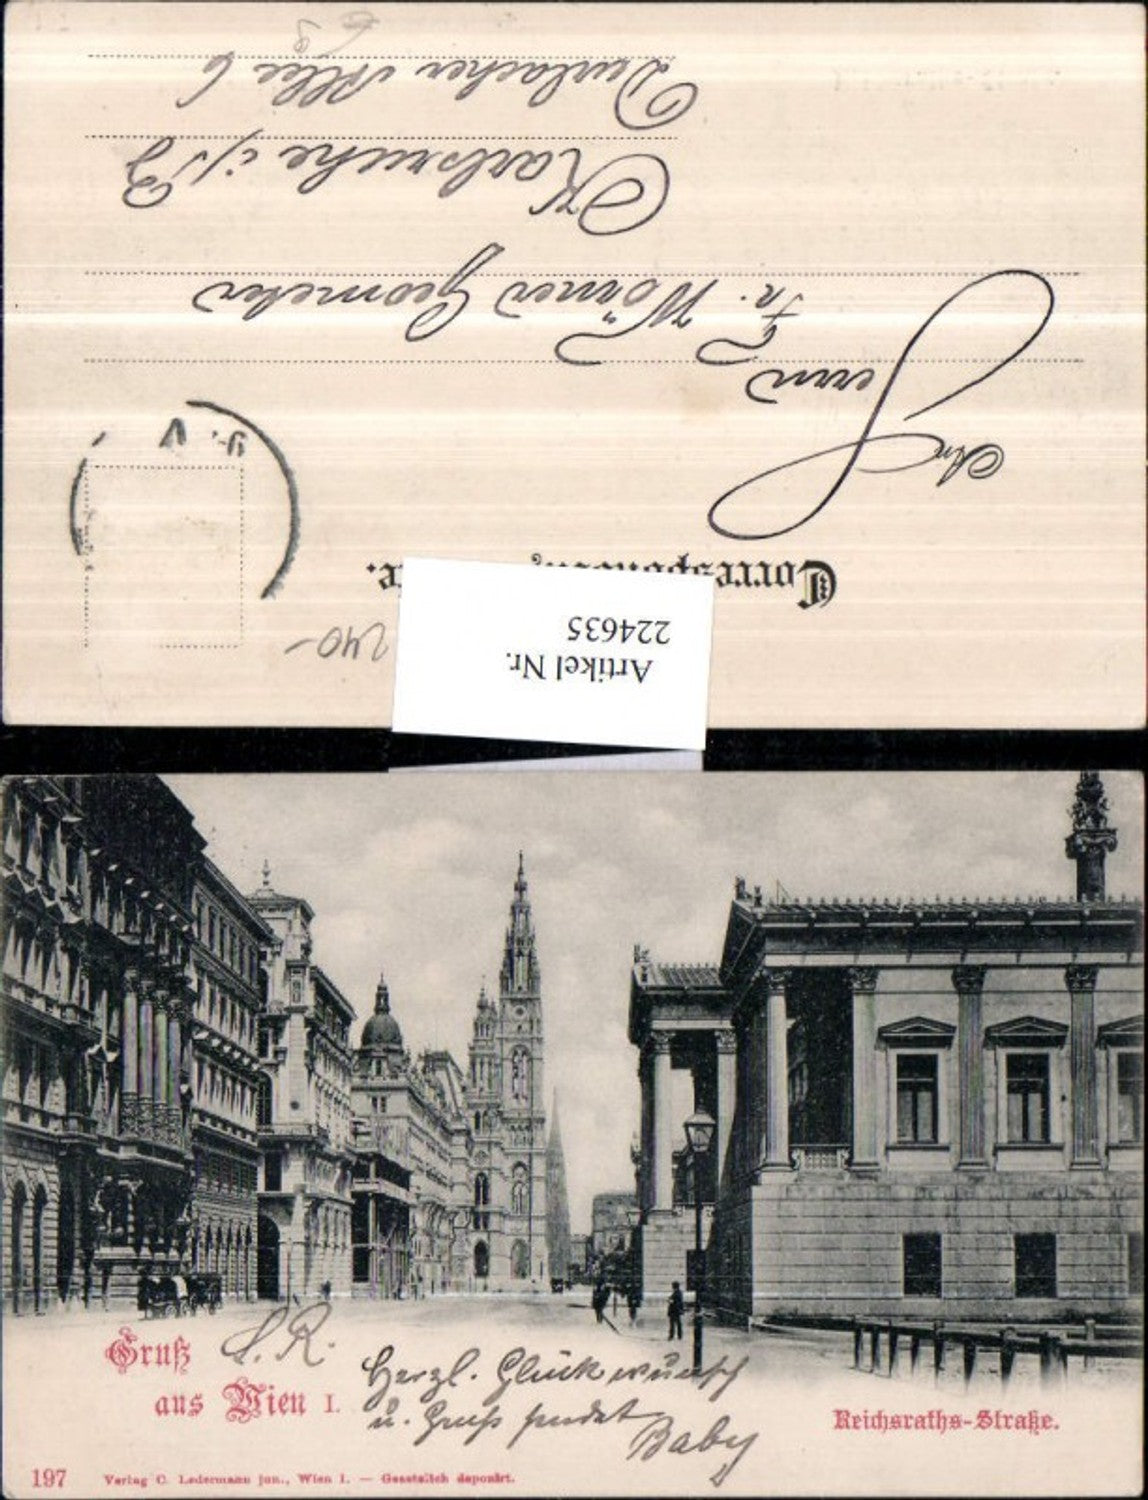 Correspondenz-Karte.
An
Herrn
Fr. Wörner Geometer
Karlsruhe i/B
Durlacher Allee 6
240-
Artikel Nr.
224635
Gruß
aus Wien I.
L. R.
Herzl. Glückwunsch
u. Gruß sendet
Baby
Reichsraths-Straße.
197 Verlag C. Ledermann jun., Wien I. — Gesetzlich deponirt.